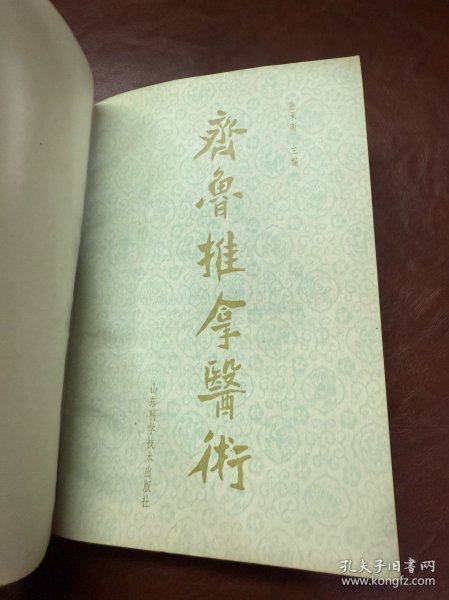 孙承南 主编
齊魯推拿醫術
山东科学技术出版社
孔夫子旧书网
www.kongfz.com